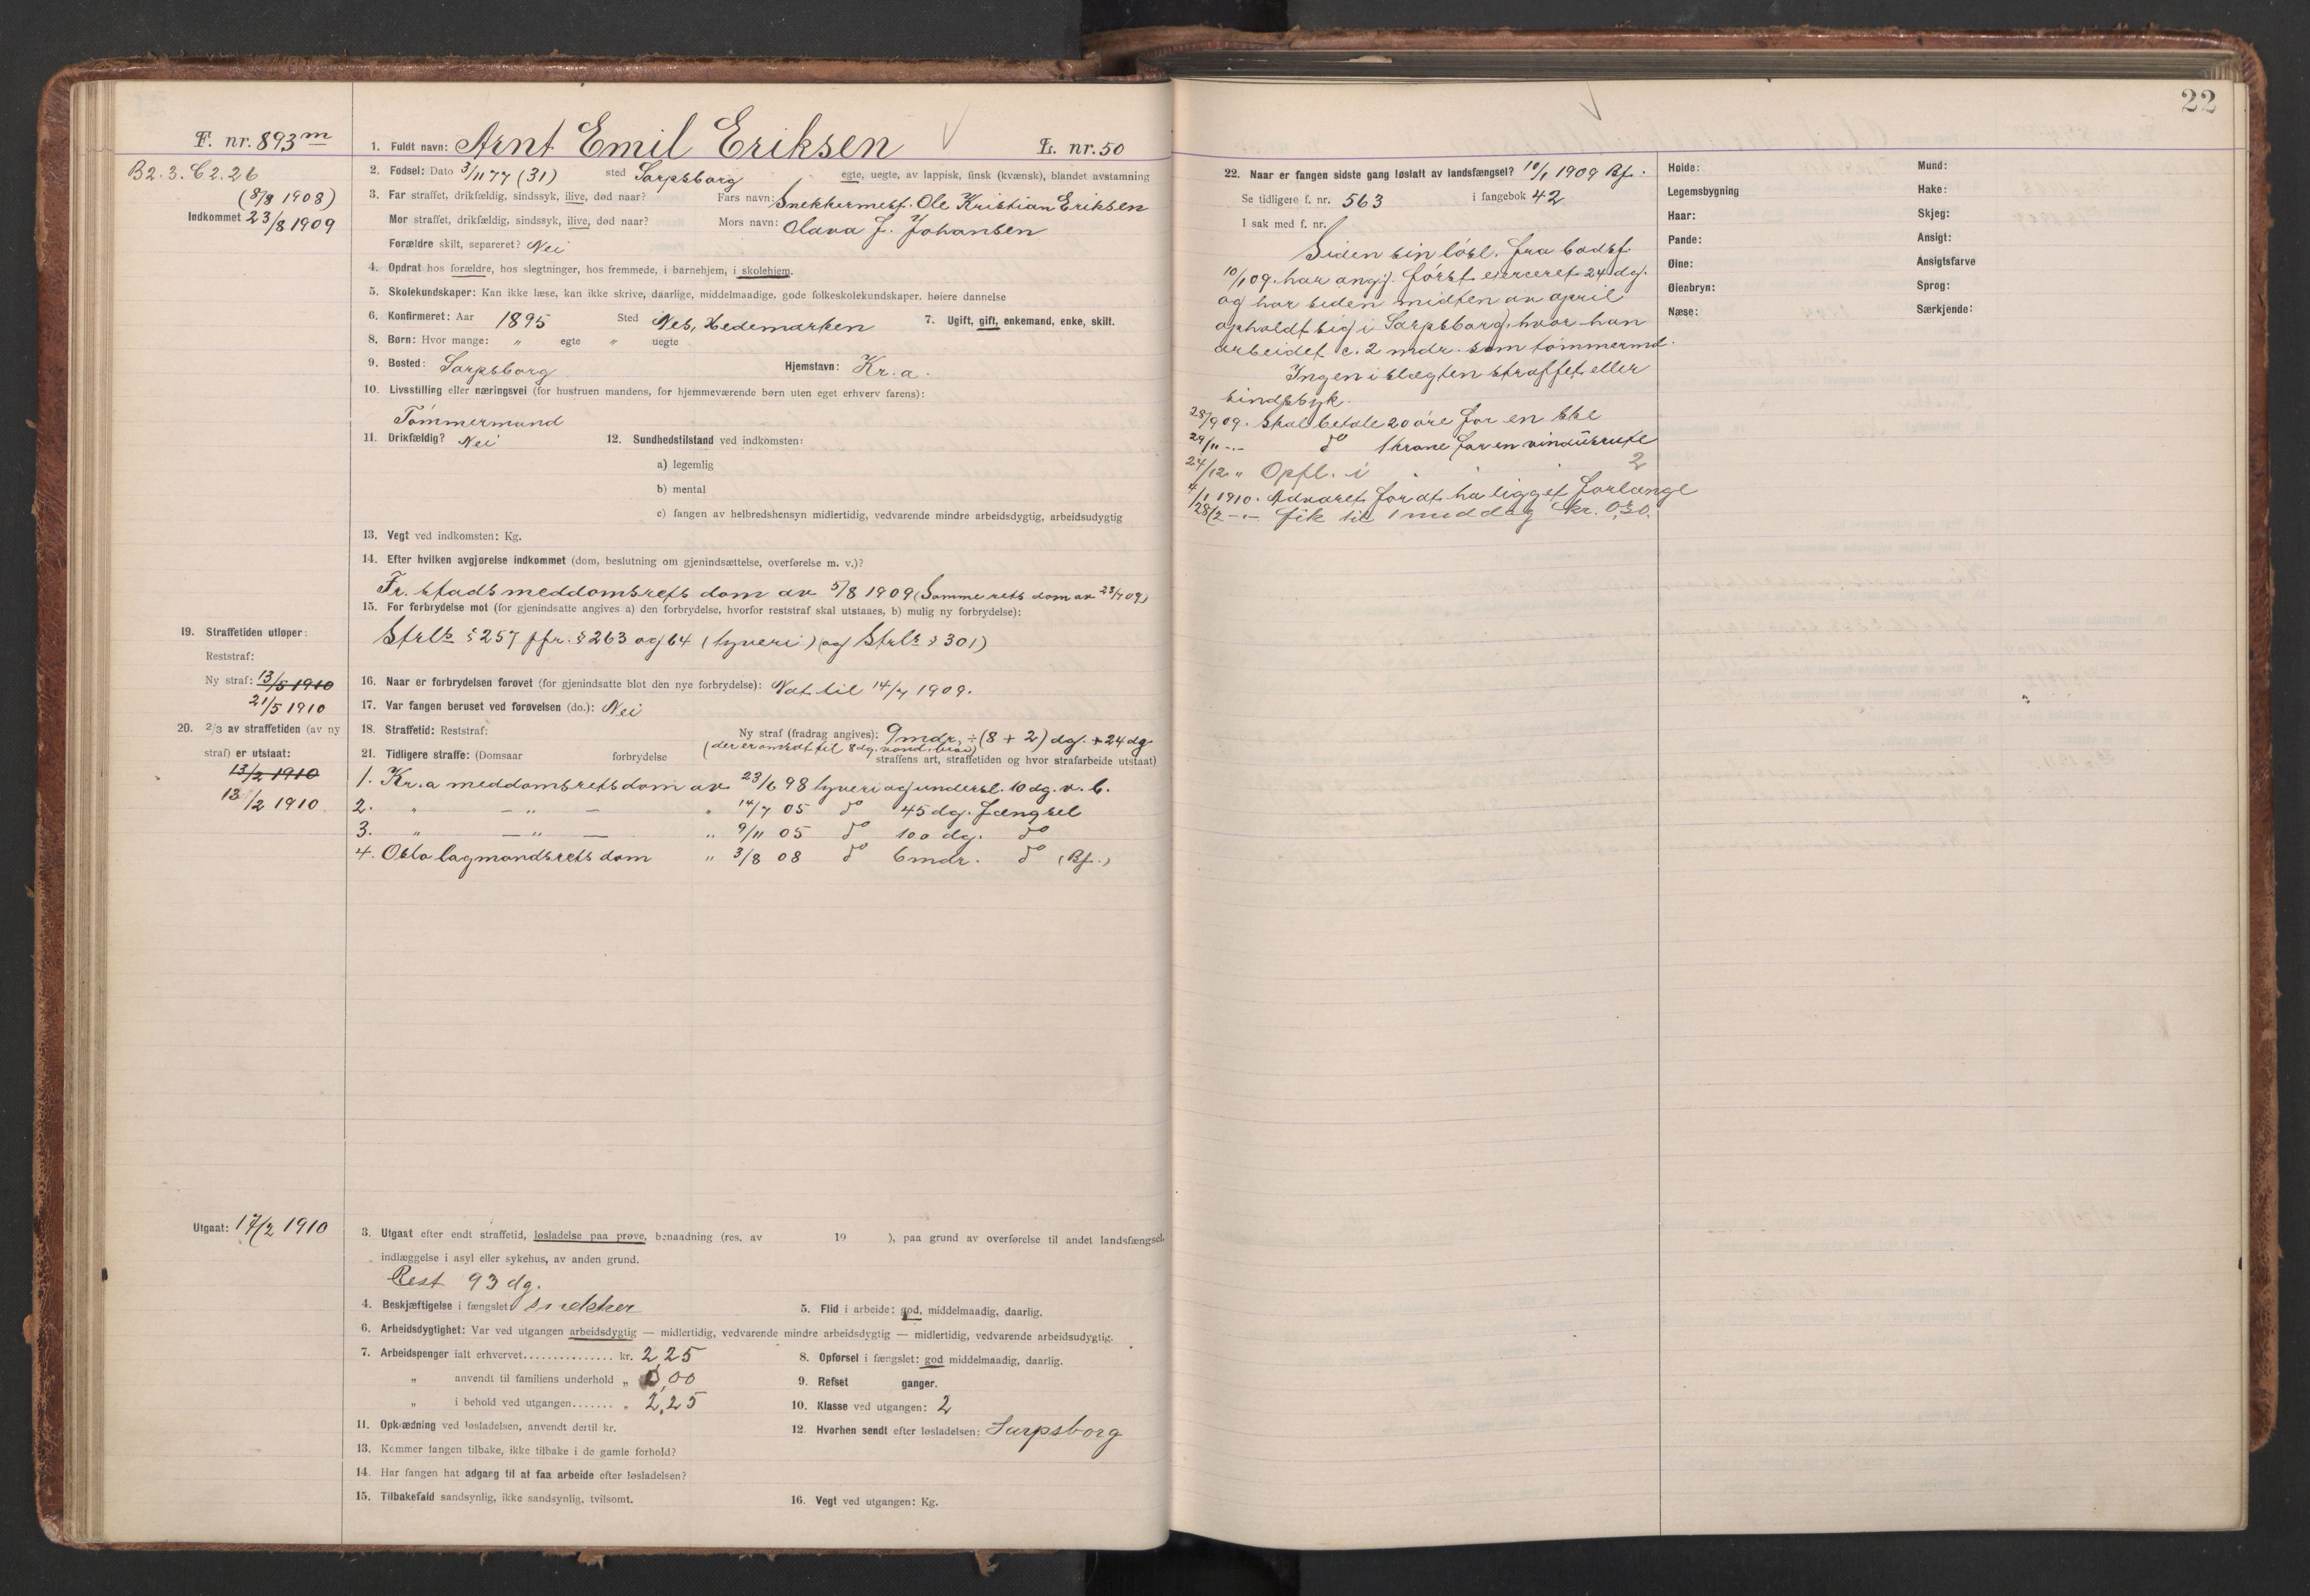 F. nr. 893 m
B2. 3. C2. 26
(8/8 1908)
Indkommet 23/8 1909
1. Fuldt navn: Arnt Emil Eriksen L. nr. 50
2. Fødsel: Dato 3/11 77 (31) sted Sarpsborg egte, uegte, av lappisk, finsk (kvænsk), blandet avstamning
3. Far straffet, drikfældig, sindssyk, ilive, død naar? Fars navn: Snekkermest. Ole Kristian Eriksen
Mor straffet, drikfældig, sindssyk, ilive, død naar? Mors navn: Olava J. Johansen
Forældre skilt, separeret? Nei
4. Opdrat hos forældre, hos slegtninger, hos fremmede, i barnehjem, i skolehjem.
5. Skolekundskaper: Kan ikke læse, kan ikke skrive, daarlige, middelmaadige, gode folkeskolekundskaper, høiere dannelse
6. Konfirmeret: Aar 1895 Sted Nes, Hedemarken 7. Ugift, gift, enkemand, enke, skilt.
8. Børn: Hvor mange: " egte " uegte
9. Bosted: Sarpsborg Hjemstavn: Kr.a.
10. Livsstilling eller næringsvei (for hustruen mandens, for hjemmeværende børn uten eget erhverv farens):
Tømmermand
11. Drikfældig? Nei 12. Sundhedstilstand ved indkomsten:
a) legemlig
b) mental
c) fangen av helbredshensyn midlertidig, vedvarende mindre arbeidsdygtig, arbeidsudygtig
13. Vegt ved indkomsten: Kg.
14. Efter hvilken avgjørelse indkommet (dom, beslutning om gjenindsættelse, overførelse m. v.)?
Fr. stads meddomsrets dom av 5/8 1909 (Samme rets dom av 23/7 09)
15. For forbrydelse mot (for gjenindsatte angives a) den forbrydelse, hvorfor reststraf skal utstaaes, b) mulig ny forbrydelse):
Strl. § 257 jfr. § 263 og 64 (tyveri) (og Strl. § 301)
19. Straffetiden utløper:
Reststraf:
Ny straf: 13/5 1910
21/5 1910
16. Naar er forbrydelsen forøvet (for gjenindsatte blot den nye forbrydelse): Nat til 14/7 1909.
17. Var fangen beruset ved forøvelsen (do.): Nei
20. 2/3 av straffetiden (av ny
straf) er utstaat:
13/2 1910
13/2 1910
18. Straffetid: Reststraf: Ny straf (fradrag angives): 9 mdr. ÷ (8 + 2) dg. + 24 dg.
(der er omsedt til 8 dg. vand, brød)
21. Tidligere straffe: (Domsaar forbrydelse straffens art, straffetiden og hvor strafarbeide utstaat)
1. Kr.a meddomsrets dom av 23/6 98 tyveri og undersl. 10 dg. v. b.
2. " — " — " 14/7 05 do 45 dg. fængsel
3. " — " — " 9/11 05 do 100 dg. do
4. Oslo lagmandsrets dom " 3/8 08 do 6 mdr. do (Bf.)
Utgaat: 17/2 1910
3. Utgaat efter endt straffetid, løsladelse paa prøve, benaadning (res. av 19 ), paa grund av overførelse til andet landsfængsel,
indlæggelse i asyl eller sykehus, av anden grund.
Rest 93 dg.
4. Beskjæftigelse i fængslet snekker 5. Flid i arbeide: god, middelmaadig, daarlig.
6. Arbeidsdygtighet: Var ved utgangen arbeidsdygtig — midlertidig, vedvarende mindre arbeidsdygtig — midlertidig, vedvarende arbeidsudygtig.
7. Arbeidspenger ialt erhvervet............... kr. 2,25 8. Opførsel i fængslet: god middelmaadig, daarlig.
" anvendt til familiens underhold " 0,00 9. Refset ganger.
" i behold ved utgangen....... " 2,25 10. Klasse ved utgangen: 2
11. Opklædning ved løsladelsen, anvendt dertil kr. 12. Hvorhen sendt efter løsladelsen: Sarpsborg
13. Kommer fangen tilbake, ikke tilbake i de gamle forhold?
14. Har fangen hat adgang til at faa arbeide efter løsladelsen?
15. Tilbakefald sandsynlig, ikke sandsynlig, tvilsomt. 16. Vegt ved utgangen: Kg.
22
22. Naar er fangen sidste gang løslatt av landsfængsel? 10/1 1909 Bf.
Se tidligere f. nr. 563 i fangebok 42
I sak med f. nr.
Siden sin løsl. fra bodsf.
10/1 09. har angj. først exerceret 24 dg.
og har siden midten av april
opholdt sig i Sarpsborg, hvor han
arbeidet c. 2 mdr. som tømmermd.
Ingen i slægten straffet eller
sindssyk.
28/9 09. Skal betale 20 øre for en ske
24/11 -"- do 1 krone for en vindusrute
24/12 " Opfl. i 2
4/1 1910. Advaret for at ha ligget forlænge
28/2 -"- fik til 1 middag kr. 0,30.
Høide: Mund:
Legemsbygning Hake:
Haar: Skjeg:
Pande: Ansigt:
Øine: Ansigtsfarve
Øienbryn: Sprog:
Næse: Særkjende: